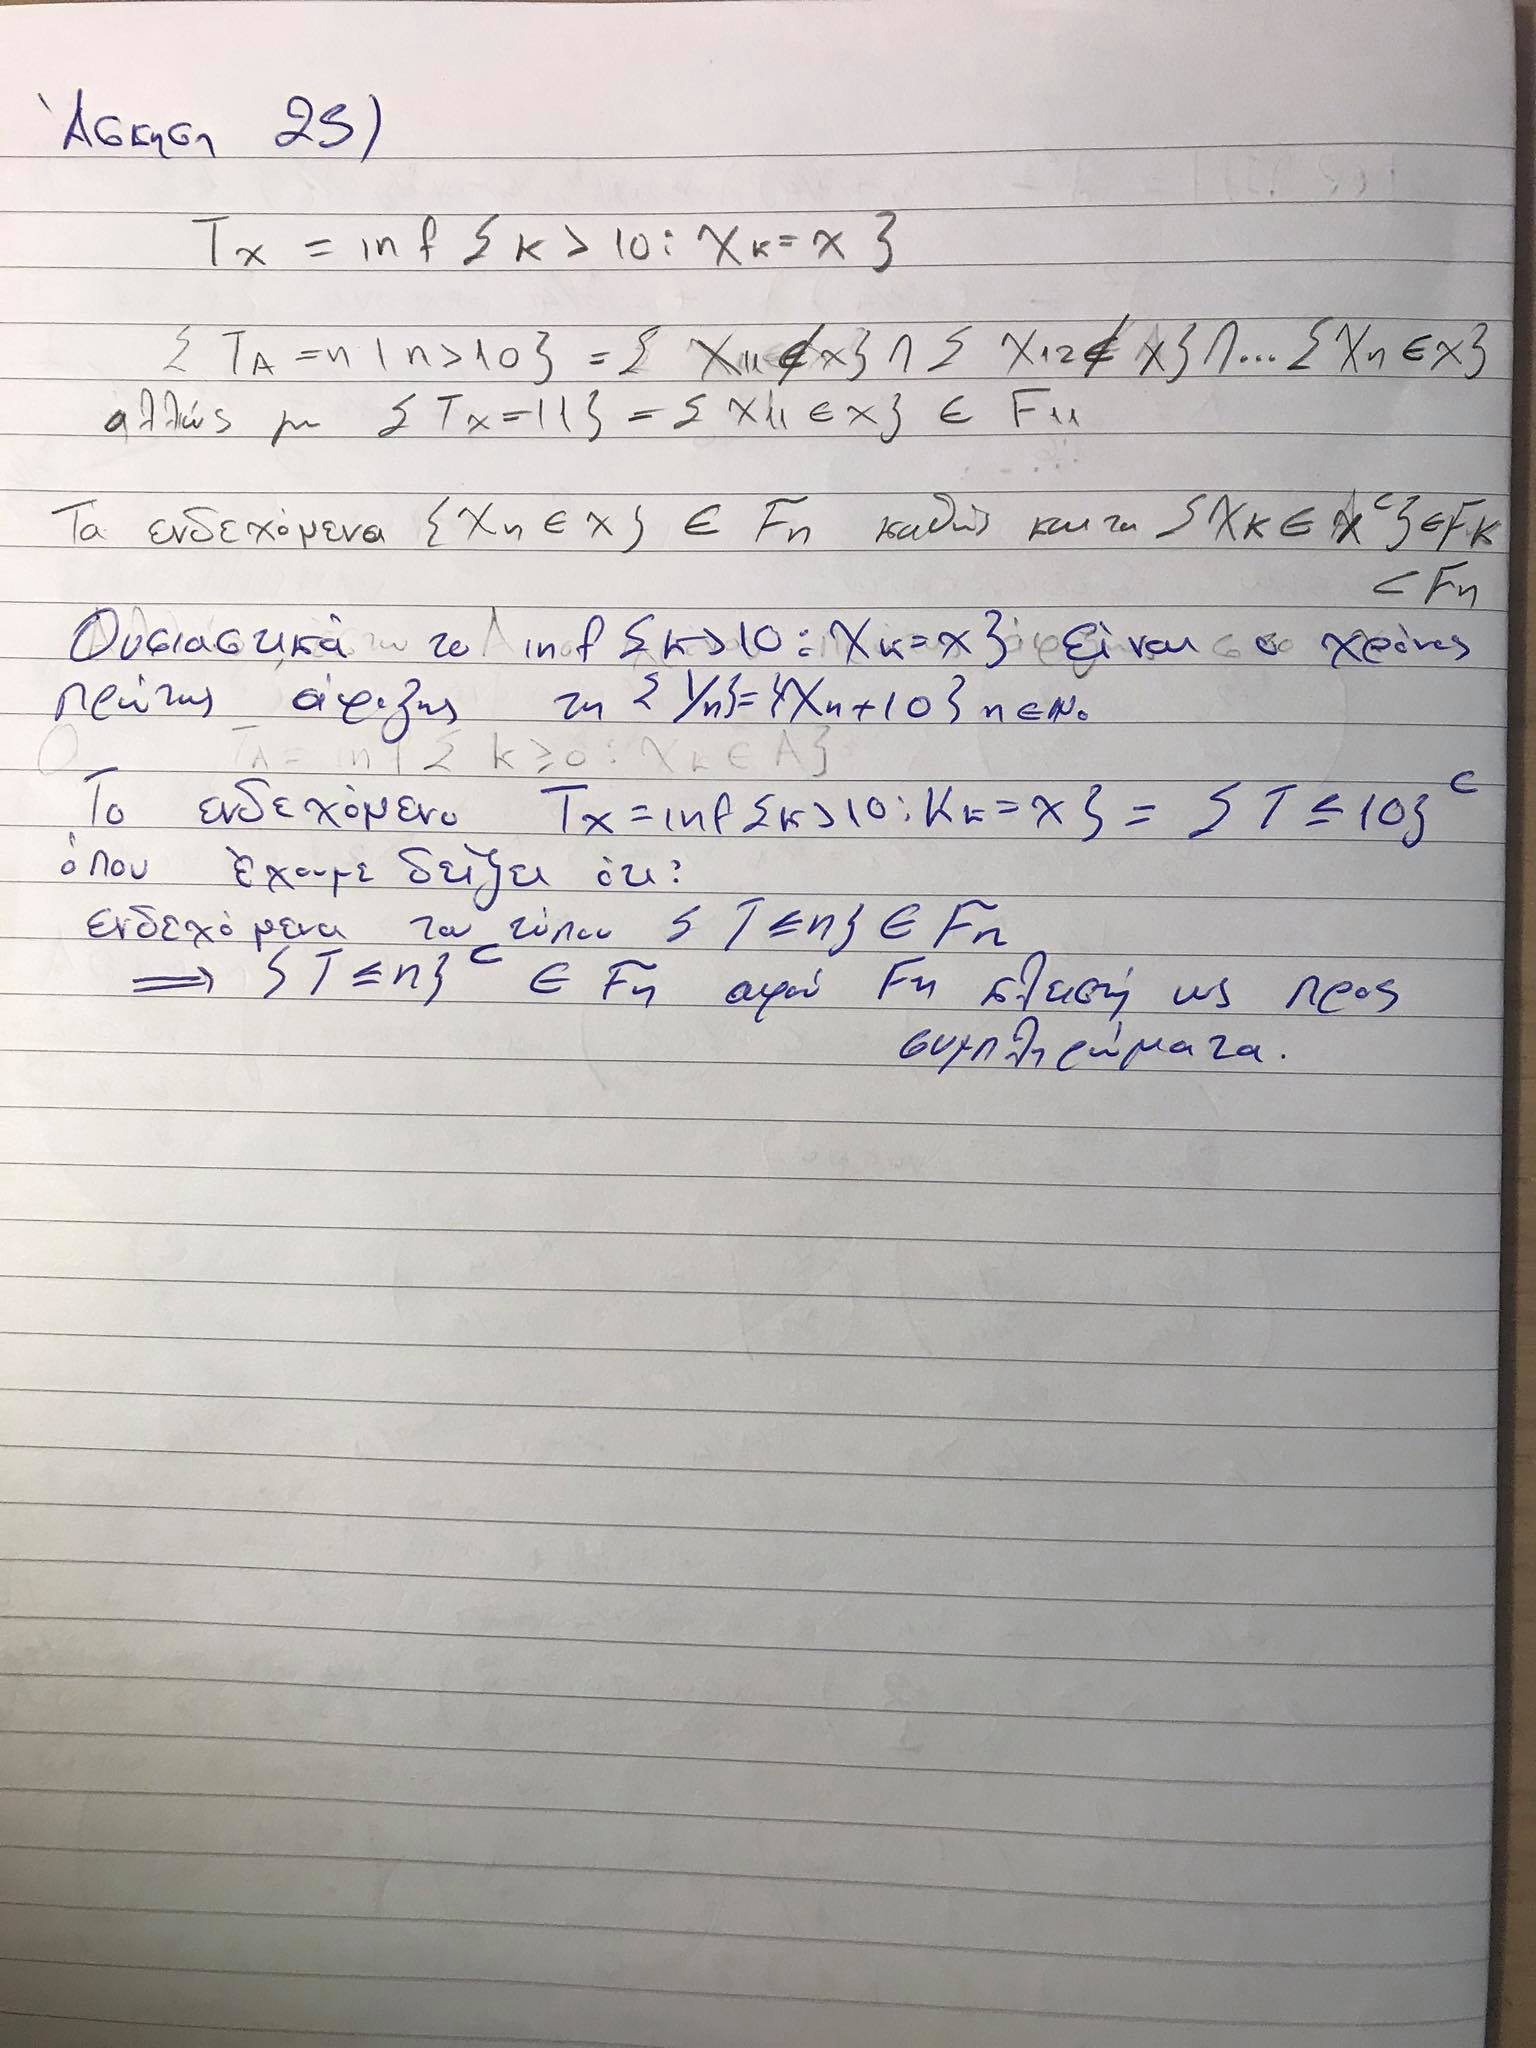 Άσκηση 25)
Tx = inf { κ > 10 : Xκ = x }
{ TA = n | n > 10 } = { X11 ∉ x } ∩ { X12 ∉ x } ∩ ... { Xn ∈ x }
αλλιώς με { Tx = 11 } = { X11 ∈ x } ∈ F11
Τα ενδεχόμενα { Xn ∈ x } ∈ Fn καθώς και τα { Xκ ∈ x^c } ∈ Fκ
⊂ Fn
Ουσιαστικά το inf { κ > 10 : Xκ = x } είναι ο χρόνος
πρώτης άφιξης τη { Yn } = { Xn + 10 } n ∈ N0
TA = inf { k ≥ 0 : Xk ∈ A }
Το ενδεχόμενο Tx = inf { κ > 10 : Xκ = x } = { T ≤ 10 }^c
όπου έχουμε δείξει ότι:
ενδεχόμενα του τύπου { T ≤ n } ∈ Fn
⟹ { T ≤ n }^c ∈ Fn αφού Fn κλειστή ως προς
συμπληρώματα.